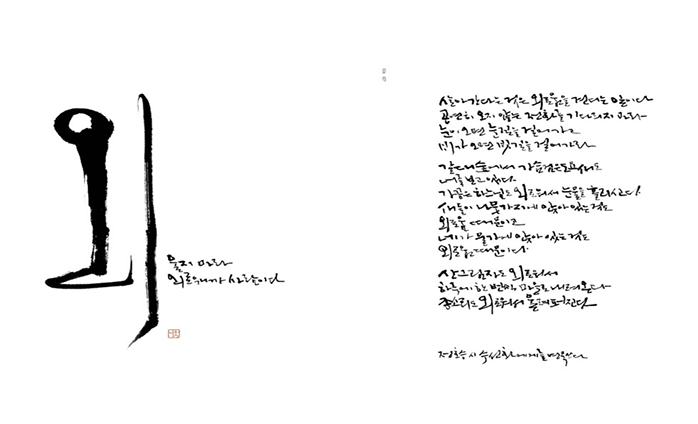 외
울지 마라
외로우니까 사람이다
살아간다는 것은 외로움을 견디는 일이다
공연히 오지 않는 전화를 기다리지 마라
눈이 오면 눈길을 걸어가고
비가 오면 빗길을 걸어가라
갈대숲에서 가슴검은도요새도
너를 보고 있다
가끔은 하느님도 외로워서 눈물을 흘리신다
새들이 나뭇가지에 앉아 있는 것도
외로움 때문이고
네가 물가에 앉아 있는 것도
외로움 때문이다
산그림자도 외로워서
하루에 한 번씩 마을로 내려온다
종소리도 외로워서 울려퍼진다
정호승 시 수선화에게를 쓰다